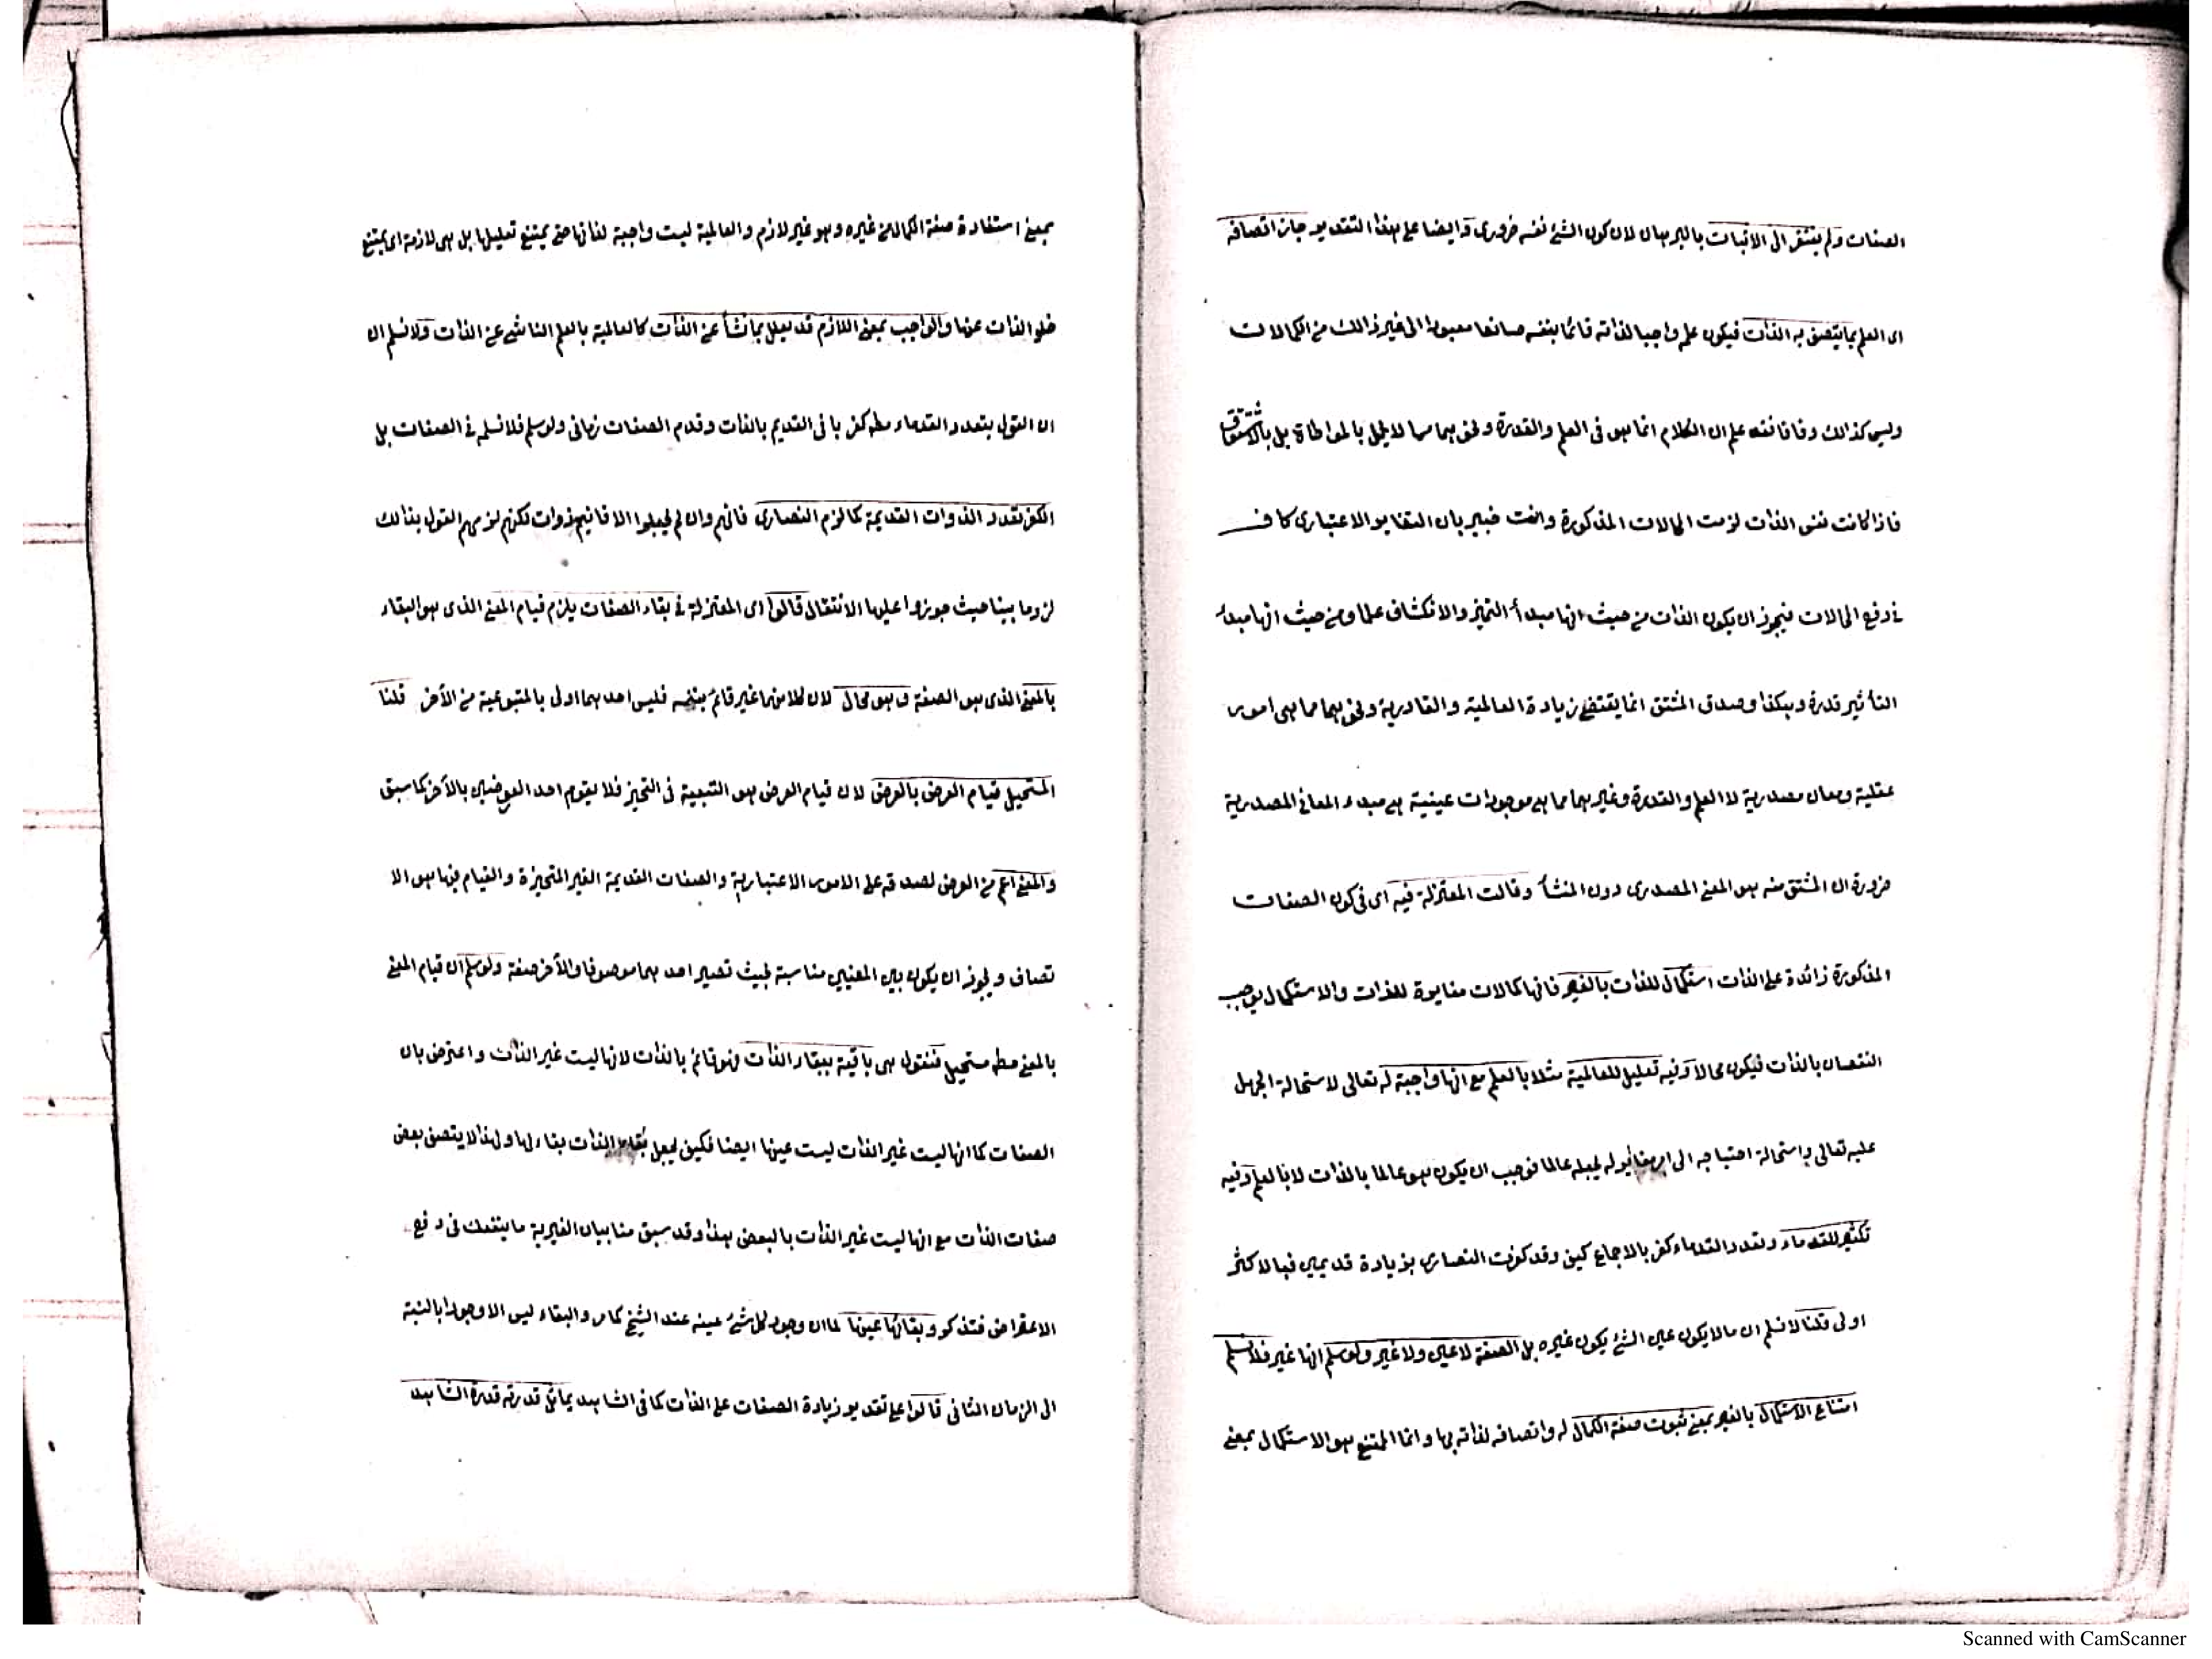 الصفات ولم يفتقر الى الاثبات بالبرهان لان كون الشئ نفسه ضرورى وايضا على هذا التقدير جاز اتصافه
اى العلم بما يتصف به الذات فيكون علمه واجبا لذاته قائما بنفسه صانعا معبودا الى غير ذالك من الكمالات
وليس كذالك وفاقا فقد علم ان الكلام انما هو فى العلم والقدرة ونحوهما مما لا يحمل بالمواطاة بل بالاشتقاق
فاذا كانت نفس الذات لزمت المحالات المذكورة وانت خبير بان التغاير الاعتبارى كاف
فى دفع المحالات فيجوز ان يكون الذات من حيث انها مبدأ التميز والانكشاف علما ومن حيث انها مبدء
التأثير قدرة وهكذا وصدق المشتق انما يقتضى زيادة العالمية والقادرية ونحوهما مما هى امور
عقلية ومعان مصدرية لا العلم والقدرة وغيرهما مما هى موجودات عينية هى مبدء المعانى المصدرية
ضرورة ان المشتق منه هو المعنى المصدرى دون المنشأ وقالت المعتزلة فيه اى فى كون الصفات
المذكورة زائدة على الذات استكمال للذات بالغير فانها كمالات مغايرة للذات والاستكمال يوجب
النقصان بالذات فيكون محالا وفيه تعليل للعالمية مثلا بالعلم مع انها واجبة له تعالى لاستحالة الجهل
عليه تعالى واستحالة احتياجه الى امر مغاير له يجعله عالما فوجب ان يكون هو عالما بالذات لا بالعلم وفيه
تكثير للقدماء وتعدد القدماء كفر بالاجماع كيف وقد كفرت النصارى بزيادة قديمين فبالاكثر
اولى قلنا لا نسلم ان ما لا يكون عين الشئ يكون غيره بل الصفة لا عين ولا غير ولو سلم انها غير فلا نسلم
امتناع الاستكمال بالغير بمعنى ثبوت صفة الكمال له واتصافه لذاته بها وانما الممتنع هو الاستكمال بمعنى
بمعنى استفادة صفة الكمال من غيره وهو غير لازم والعالمية ليست واجبة لذاتها حتى يمتنع تعليلها بل هى لازمة اى يمتنع
خلو الذات عنها والواجب بمعنى اللازم قد يعلل بما نشأ عن الذات كالعالمية بالعلم الناشى عن الذات ولا نسلم ان
ان القول بتعدد القدماء مطه كفر بل فى القديم بالذات وقدم الصفات زمانى ولو سلم فلا نسلمه فى الصفات بل
الكفر تعدد الذوات القديمة كما لزم النصارى فانهم وان لم يجعلوا الاقانيم ذوات لكنهم لزمهم القول بذالك
لزوما بينا حيث جوزوا عليها الانتقال قالوا اى المعتزلة فى بقاء الصفات يلزم قيام المعنى الذى هو البقاء
بالمعنى الذى هو الصفة وهو محال لان كلا منهما غير قائم بنفسه فليس احدهما اولى بالمتبوعية من الآخر قلنا
المستحيل قيام العرض بالعرض لان قيام العرض هو التبعية فى التحيز فلا يقوم احد العرضين بالآخر كما سبق
والمعنى اعم من العرض لصدقه على الامور الاعتبارية والصفات القديمة الغير المتحيزة والقيام فيها هو الا
تصاف ويجوز ان يكون بين المعنيين مناسبة بحيث تصير احدهما موصوفا والآخر صفة ولو سلم ان قيام المعنى
بالمعنى مطه مستحيل فنقول هى باقية ببقاء الذات فهو قائم بالذات لانها ليست غير الذات واعترض بان
الصفات كما انها ليست غير الذات ليست عينها ايضا فكيف يجعل بقاء الذات بقاء لها ولهذا لا يتصف بعض
صفات الذات مع انها ليست غير الذات بالبعض هذا وقد سبق منا بيان الغيرية ما ينفعك فى دفع
الاعتراض فتذكر وبقائها عينها لما ان وجود كل شئ عينه عند الشيخ كما مر والبقاء ليس الا وجودا بالنسبة
الى الزمان الثانى قالوا على تقدير زيادة الصفات على الذات كما فى الشاهد يماثل قدرته قدرة الشاهد
Scanned with CamScanner